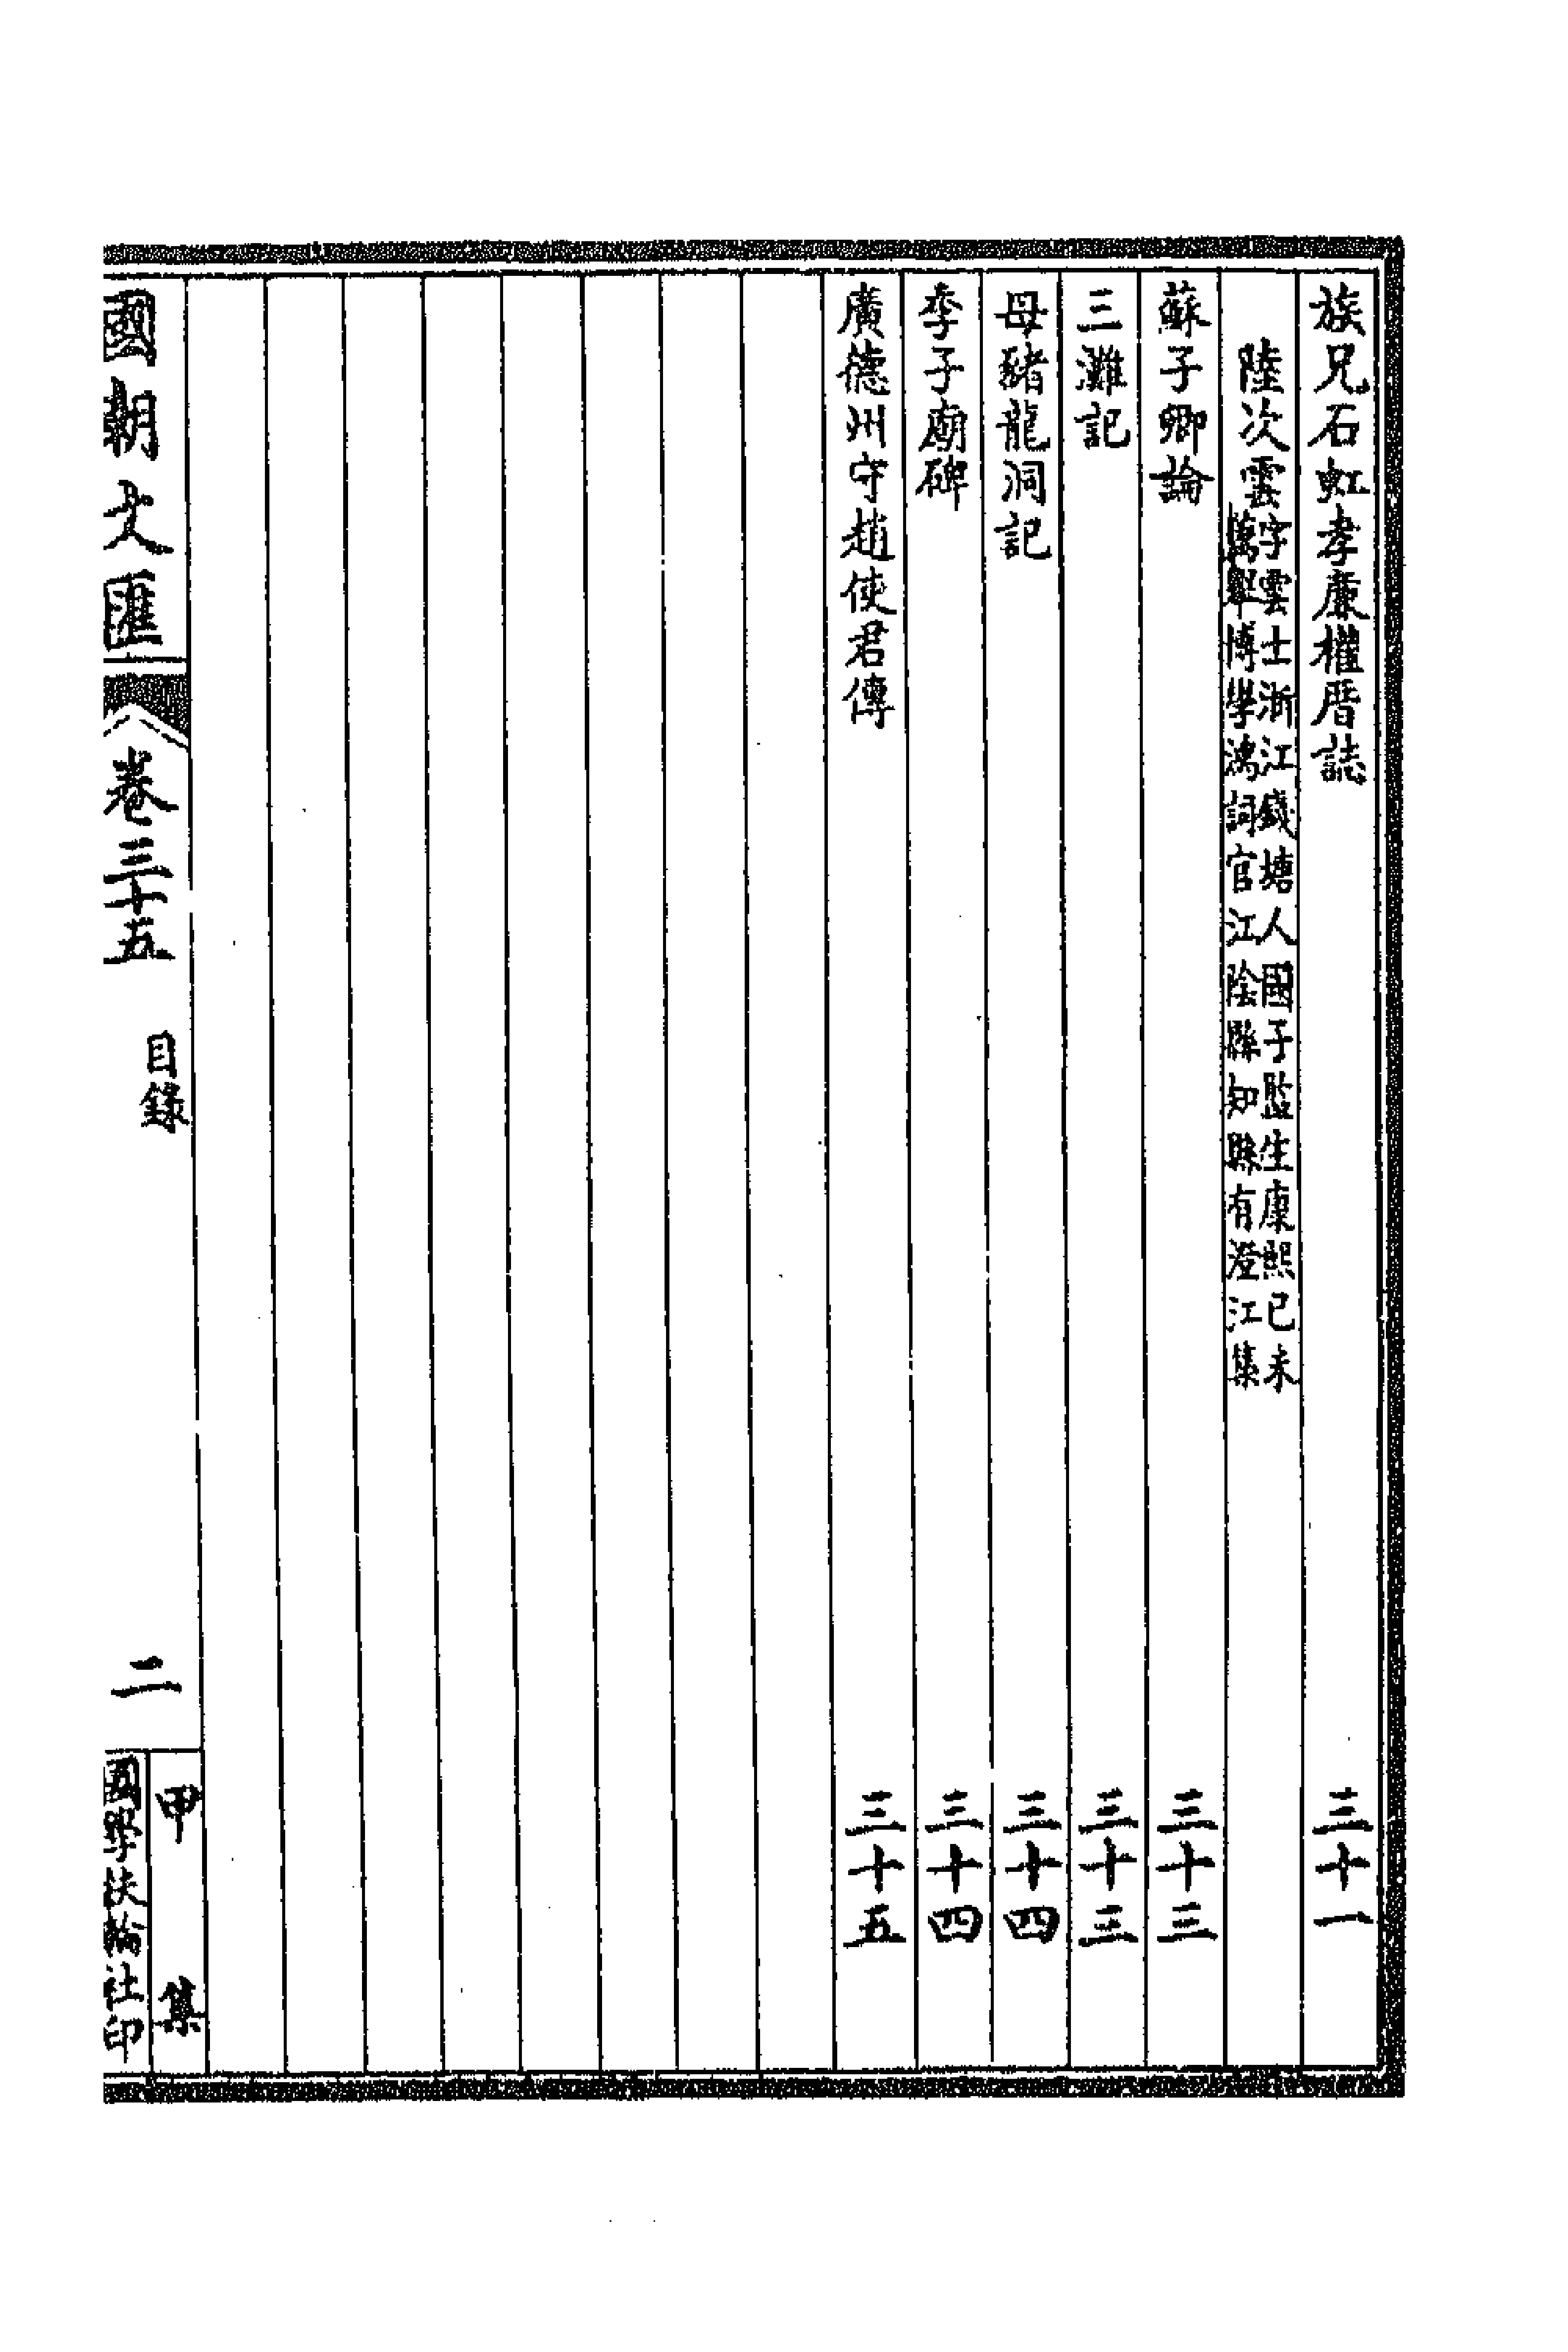 族兄石虹孝廉權厝誌　三十一
陸次雲字雲士浙江錢塘人國子監生康熙己未
薦舉博學鴻詞官江陰縣知縣有澄江集
蘇子卿論　三十三
三灘記　三十三
母豬龍洞記　三十四
季子廟碑　三十四
廣德州守趙使君傳　三十五
國朝文匯　卷三十五　目錄　二
甲集
國學扶輪社印